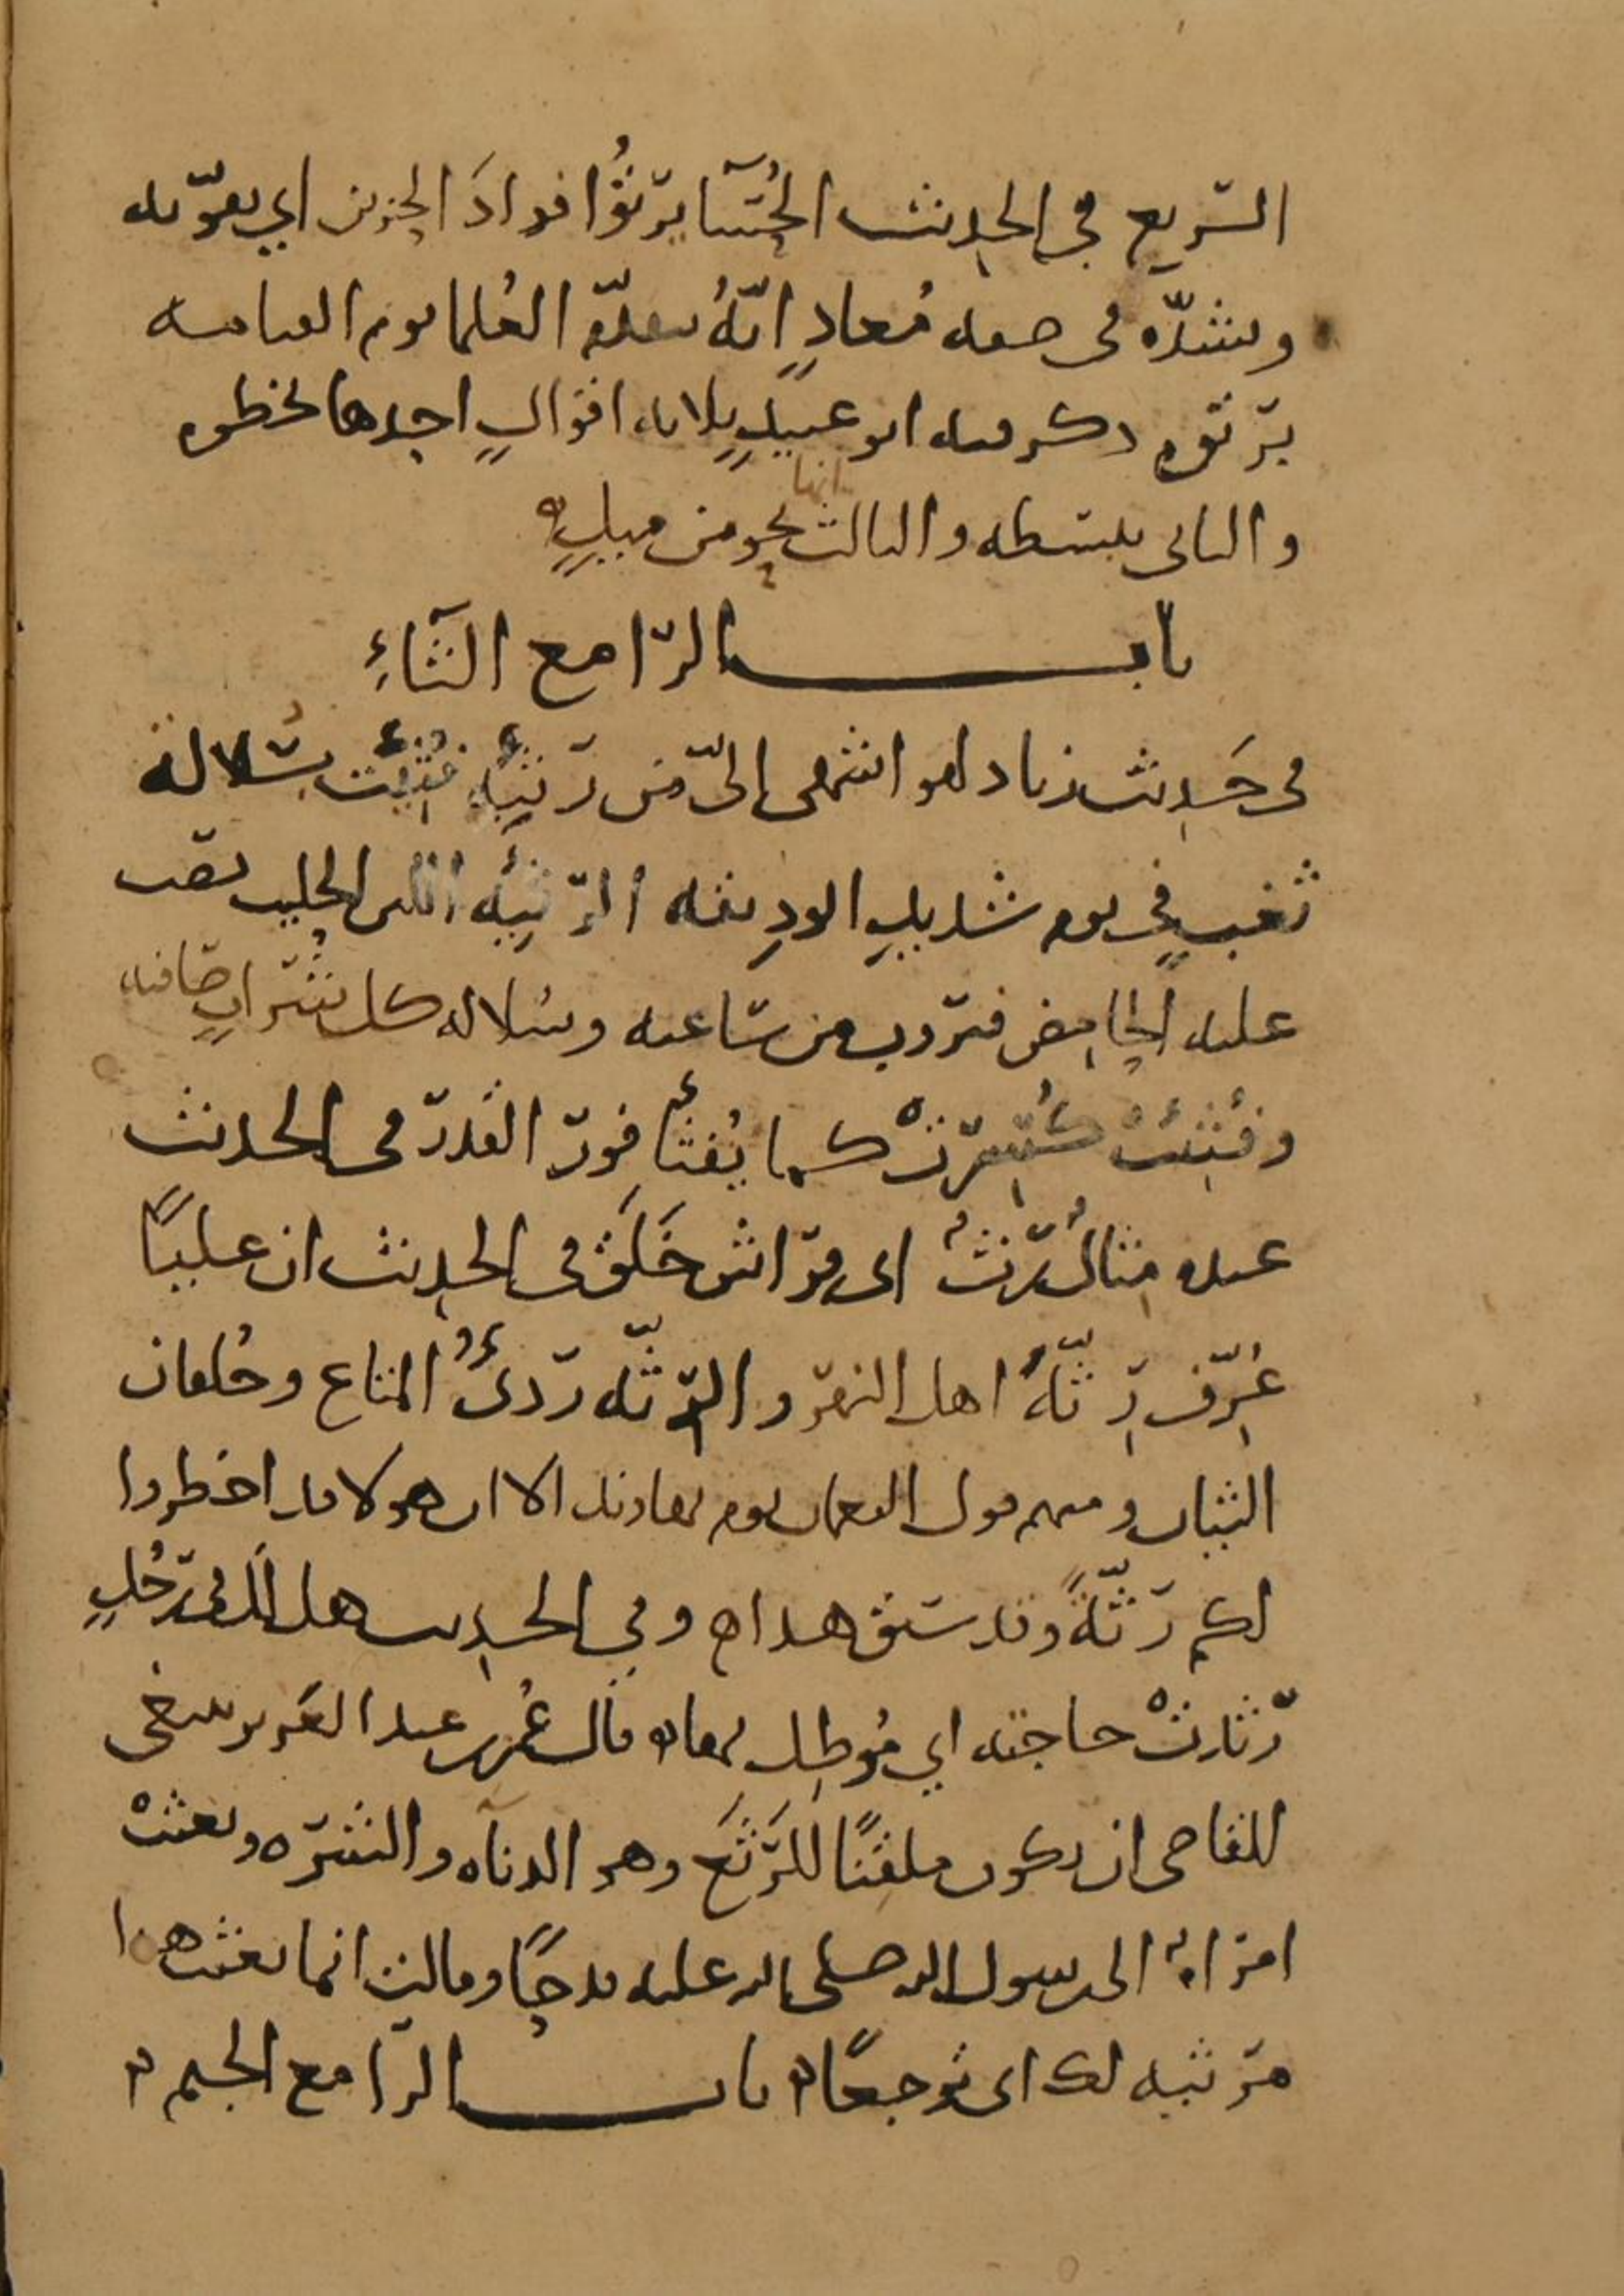 السريع في الحديث الحسا يرتوا فواد الحزين اي يقويه
ويشده في صفه معاذ انه يتقدم العلما يوم القيامه
برتوه ذكر فيه ابو عبيد ثلاثه اقوال احدها بخطوه
والثاني ببسطه والثالث انها نحو من ميل
باب الرا مع الثاء
في حديث زياد لهو اشهى الي من رثيئه فثئت بسلاله
ثغب في يوم شديد الوديقه الرثيئه اللبن الحليب يصب
عليه الحامض فيروب من ساعته وسلاله كل شراب صافيه
وفثئت كسرت كما يفثا فور القدر في الحديث
عنده مثال رث اى فراش خلق في الحديث ان عليا
عرف رثه اهل النهر والرثه ردئ المتاع وخلقان
الثياب ومنه قول النعمان يوم نهاوند الا ان هولا قد اخطروا
لكم رثة وقد سبق هذا وفي الحديث هل لك في رجل
رثدت حاجته اي مُوطل بها قال عمر بن عبد العزيز ينبغي
للقاضي ان يكون ملقيا للرثع وهو الدناه والشره وبعثت
امراة الى رسول الله صلى الله عليه قدحا وقالت انما بعثت هذا
مرثيه لك اى توجعا باب الرا مع الجيم